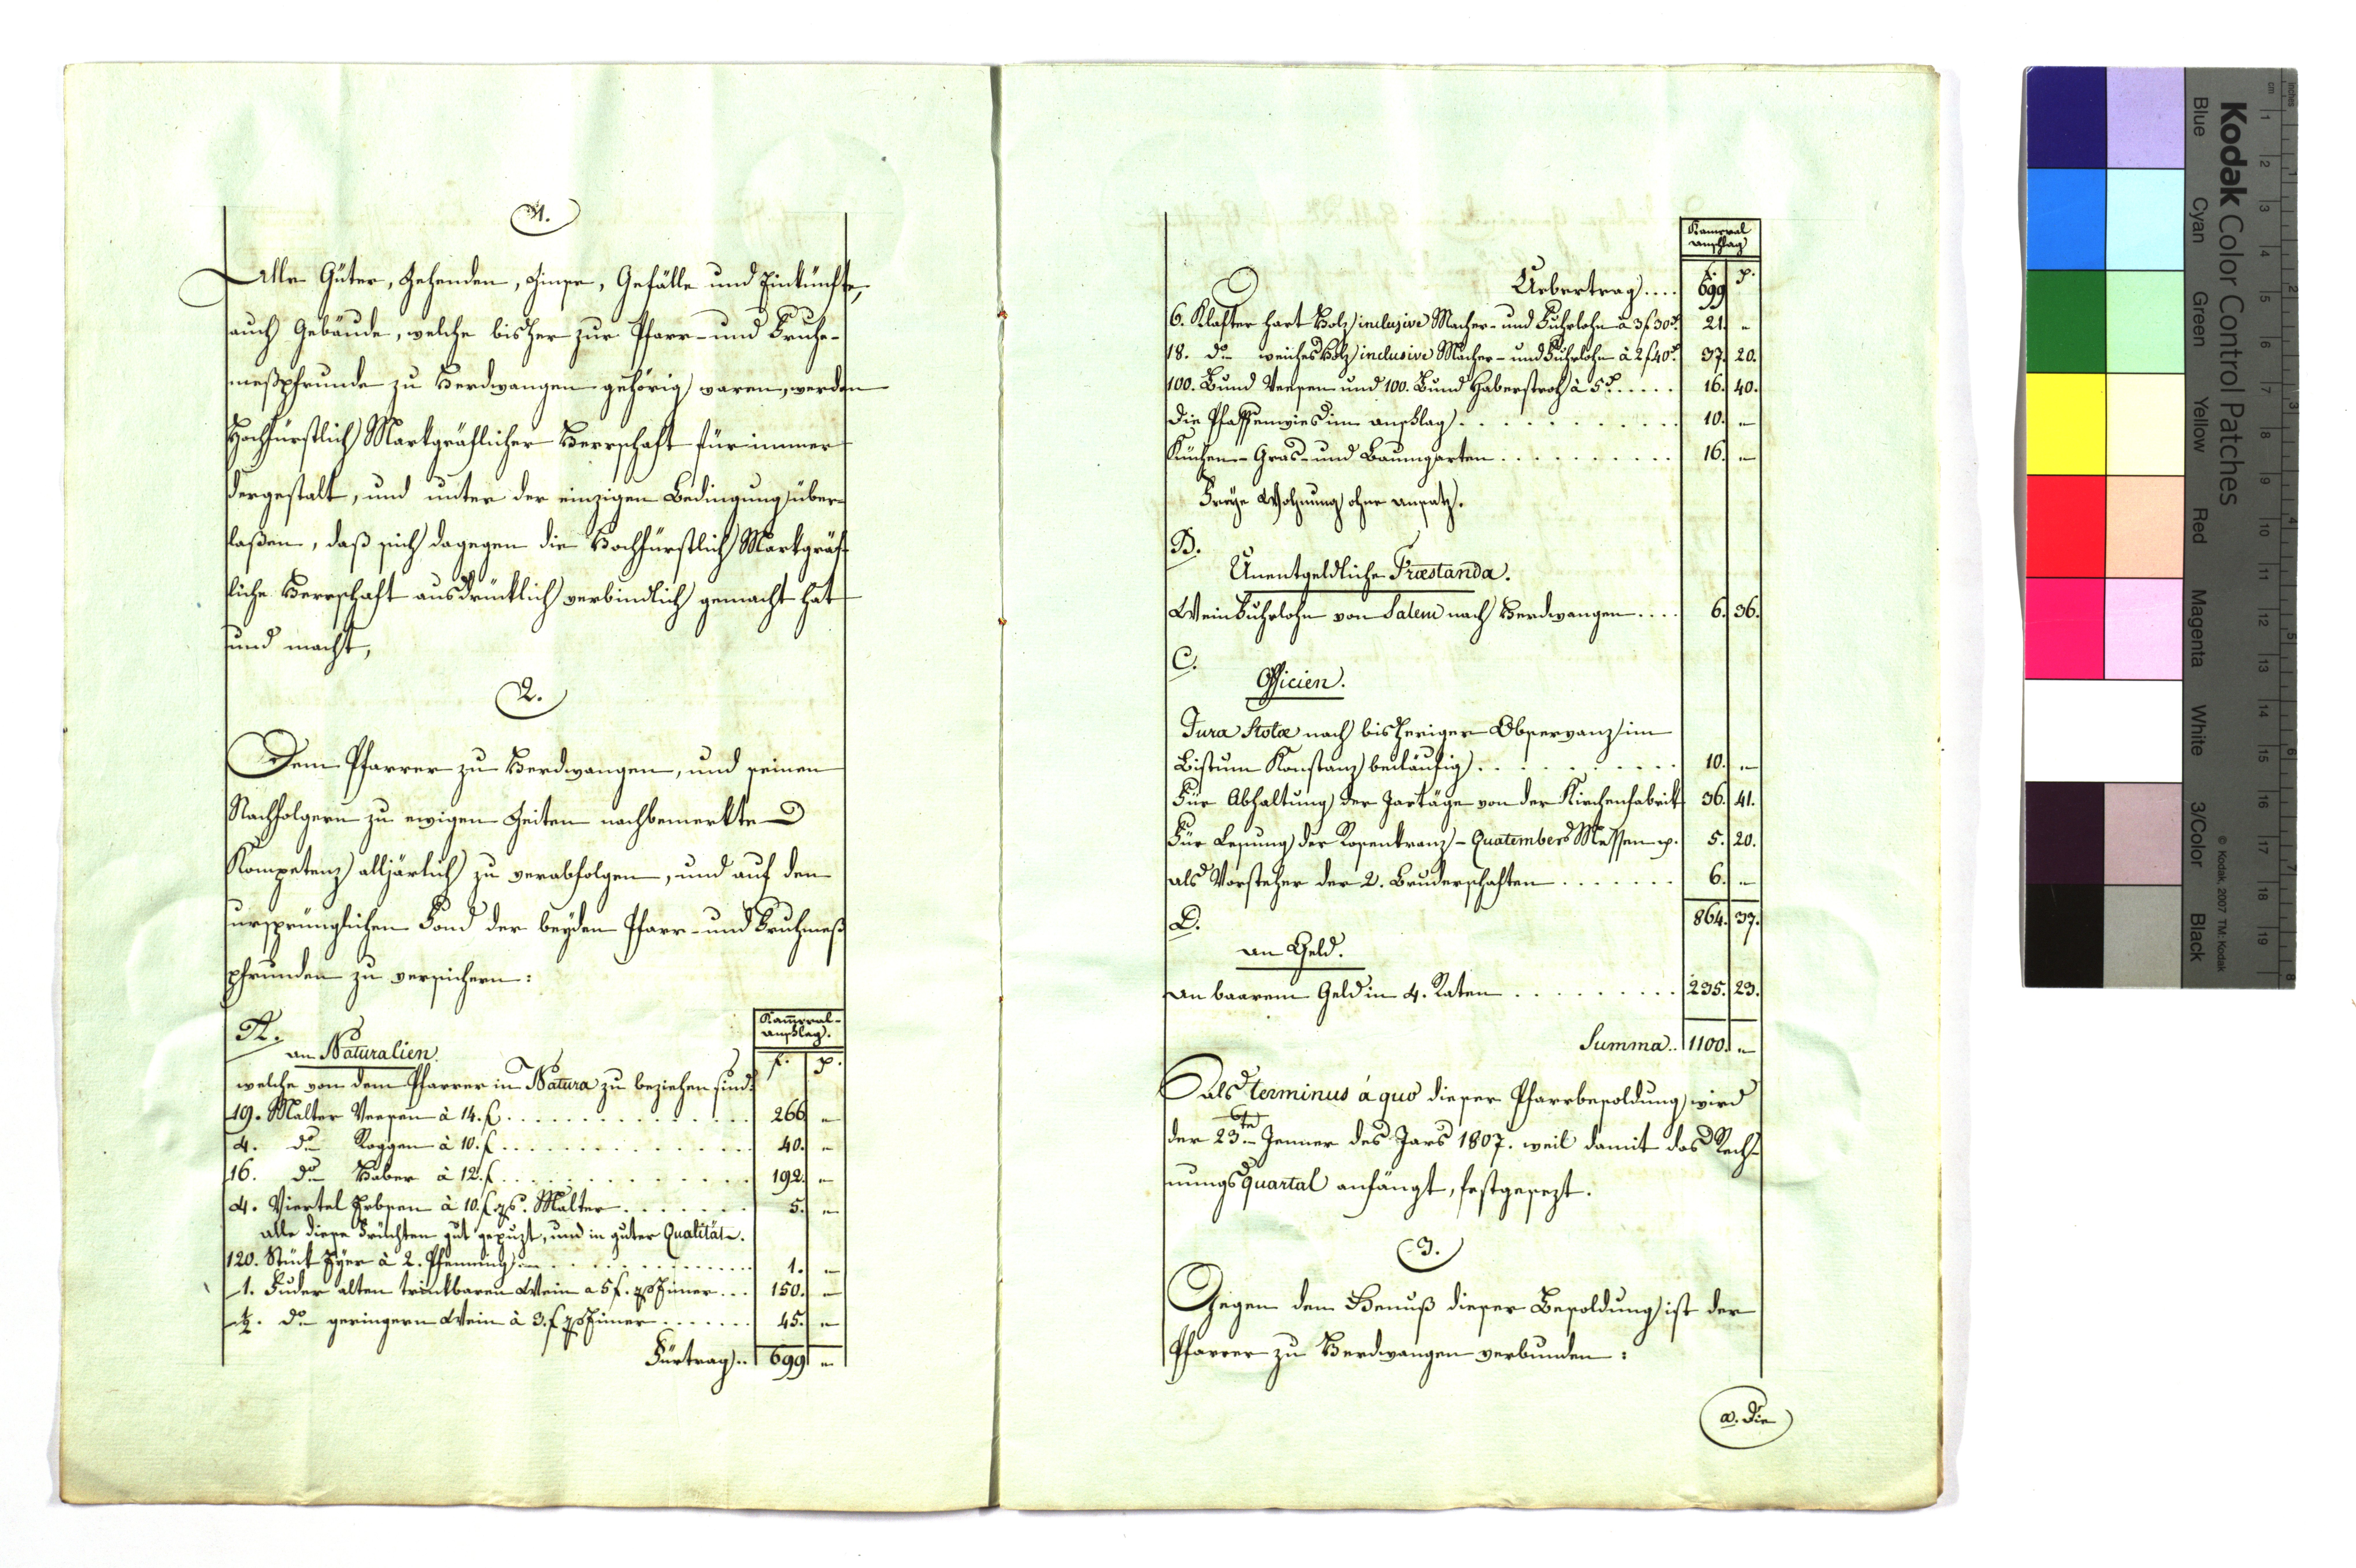 1.
Alle Güter, Zehenden, Zinse, Gefälle und Einkünfte,
auch Gebäude, welche bisher zur Pfarr- und Fruhe-
meßpfrunde zu Herdwangen gehörig waren, werden
Hochfürstlich Markgräflicher Herrschaft für immer
dergestalt, und unter der einzigen Bedingung über-
laßen, daß sich dagegen die Hochfürstlich Markgräf-
liche Herrschaft ausdrücklich verbindlich gemacht hat
und macht,
2.
Dem Pfarrer zu Herdwangen, und seinen
Nachfolgern zu ewigen Zeiten nachbemerkte
Kompetenz alljärlich zu verabfolgen, und auf den
ursprünglichen Fond der beyden Pfarr- und Fruhmeß
pfrunden zu versichern:
Kam̅eral-
anschlag.
A.
an Naturalien.
f. x.
welche von dem Pfarrer in Natura zu beziehen sind.
19. Malter Veesen à 14. f. 266 "
4. do Roggen à 10. f. 40. "
16. do Haber à 12. f. 192. "
4. Viertel Erbsen à 10. f. pr. Malter 5. "
alle diese Früchten gut gepuzt, und in guter Qualität.
120. Stük Eyer à 2. Pfenning 1. "
1. Fuder alten trinkbaren Wein a 5 f. pr Eimer 150. "
½. do geringern Wein à 3. f pr Eimer 45. "
Fürtrag.. 699 "
Kameral
anschlag
f. x.
Uebertrag.... 699
6. Klafter hart Holz inclusive Macher- und Fuhrlohn à 3 f 30 x. 21. "
18. do weiches Holz inclusive Macher- und Fuhrlohn à 2 f 40 x. 37. 20.
100. Bund Veesen und 100. Bund Haberstroh à 5 x. 16. 40.
die Pfaffenwies im anschlag 10. "
Küchen- Gras- und Baumgarten 16. "
Freye Wohnung ohne ansatz.
B.
Unentgeldliche Præstanda.
Weinfuhrlohn von Salem nach Herdwangen.... 6. 36.
C.
Officien.
Jura Stolæ nach bisheriger Observanz im
Bistum Konstanz beiläufig 10. "
Für Abhaltung der Jartäge von der Kirchenfabrik 36. 41.
Für Lesung der Rosenkranz- Quatembers Messen p. 5. 20.
als Vorsteher der 2. Bruderschaften 6. "
864. 37.
D.
an Geld.
an baarem Geld in 4. Raten 235. 23.
Summa.. 1100. "
als terminus à quo dieser Pfarrbesoldung wird
der 23.te Jenner des Jars 1807. weil damit das Rech-
nungs quartal anfängt, festgesezt.
3.
Gegen dem Genuß dieser Besoldung ist der
Pfarrer zu Herdwangen verbunden:
a. Die
Kodak Color Control Patches
Blue Cyan Green Yellow Red Magenta White 3/Color Black
© Kodak, 2007 TM: Kodak
inches 1 2 3 4 5 6 7 8
cm 1 2 3 4 5 6 7 8 9 10 11 12 13 14 15 16 17 18 19